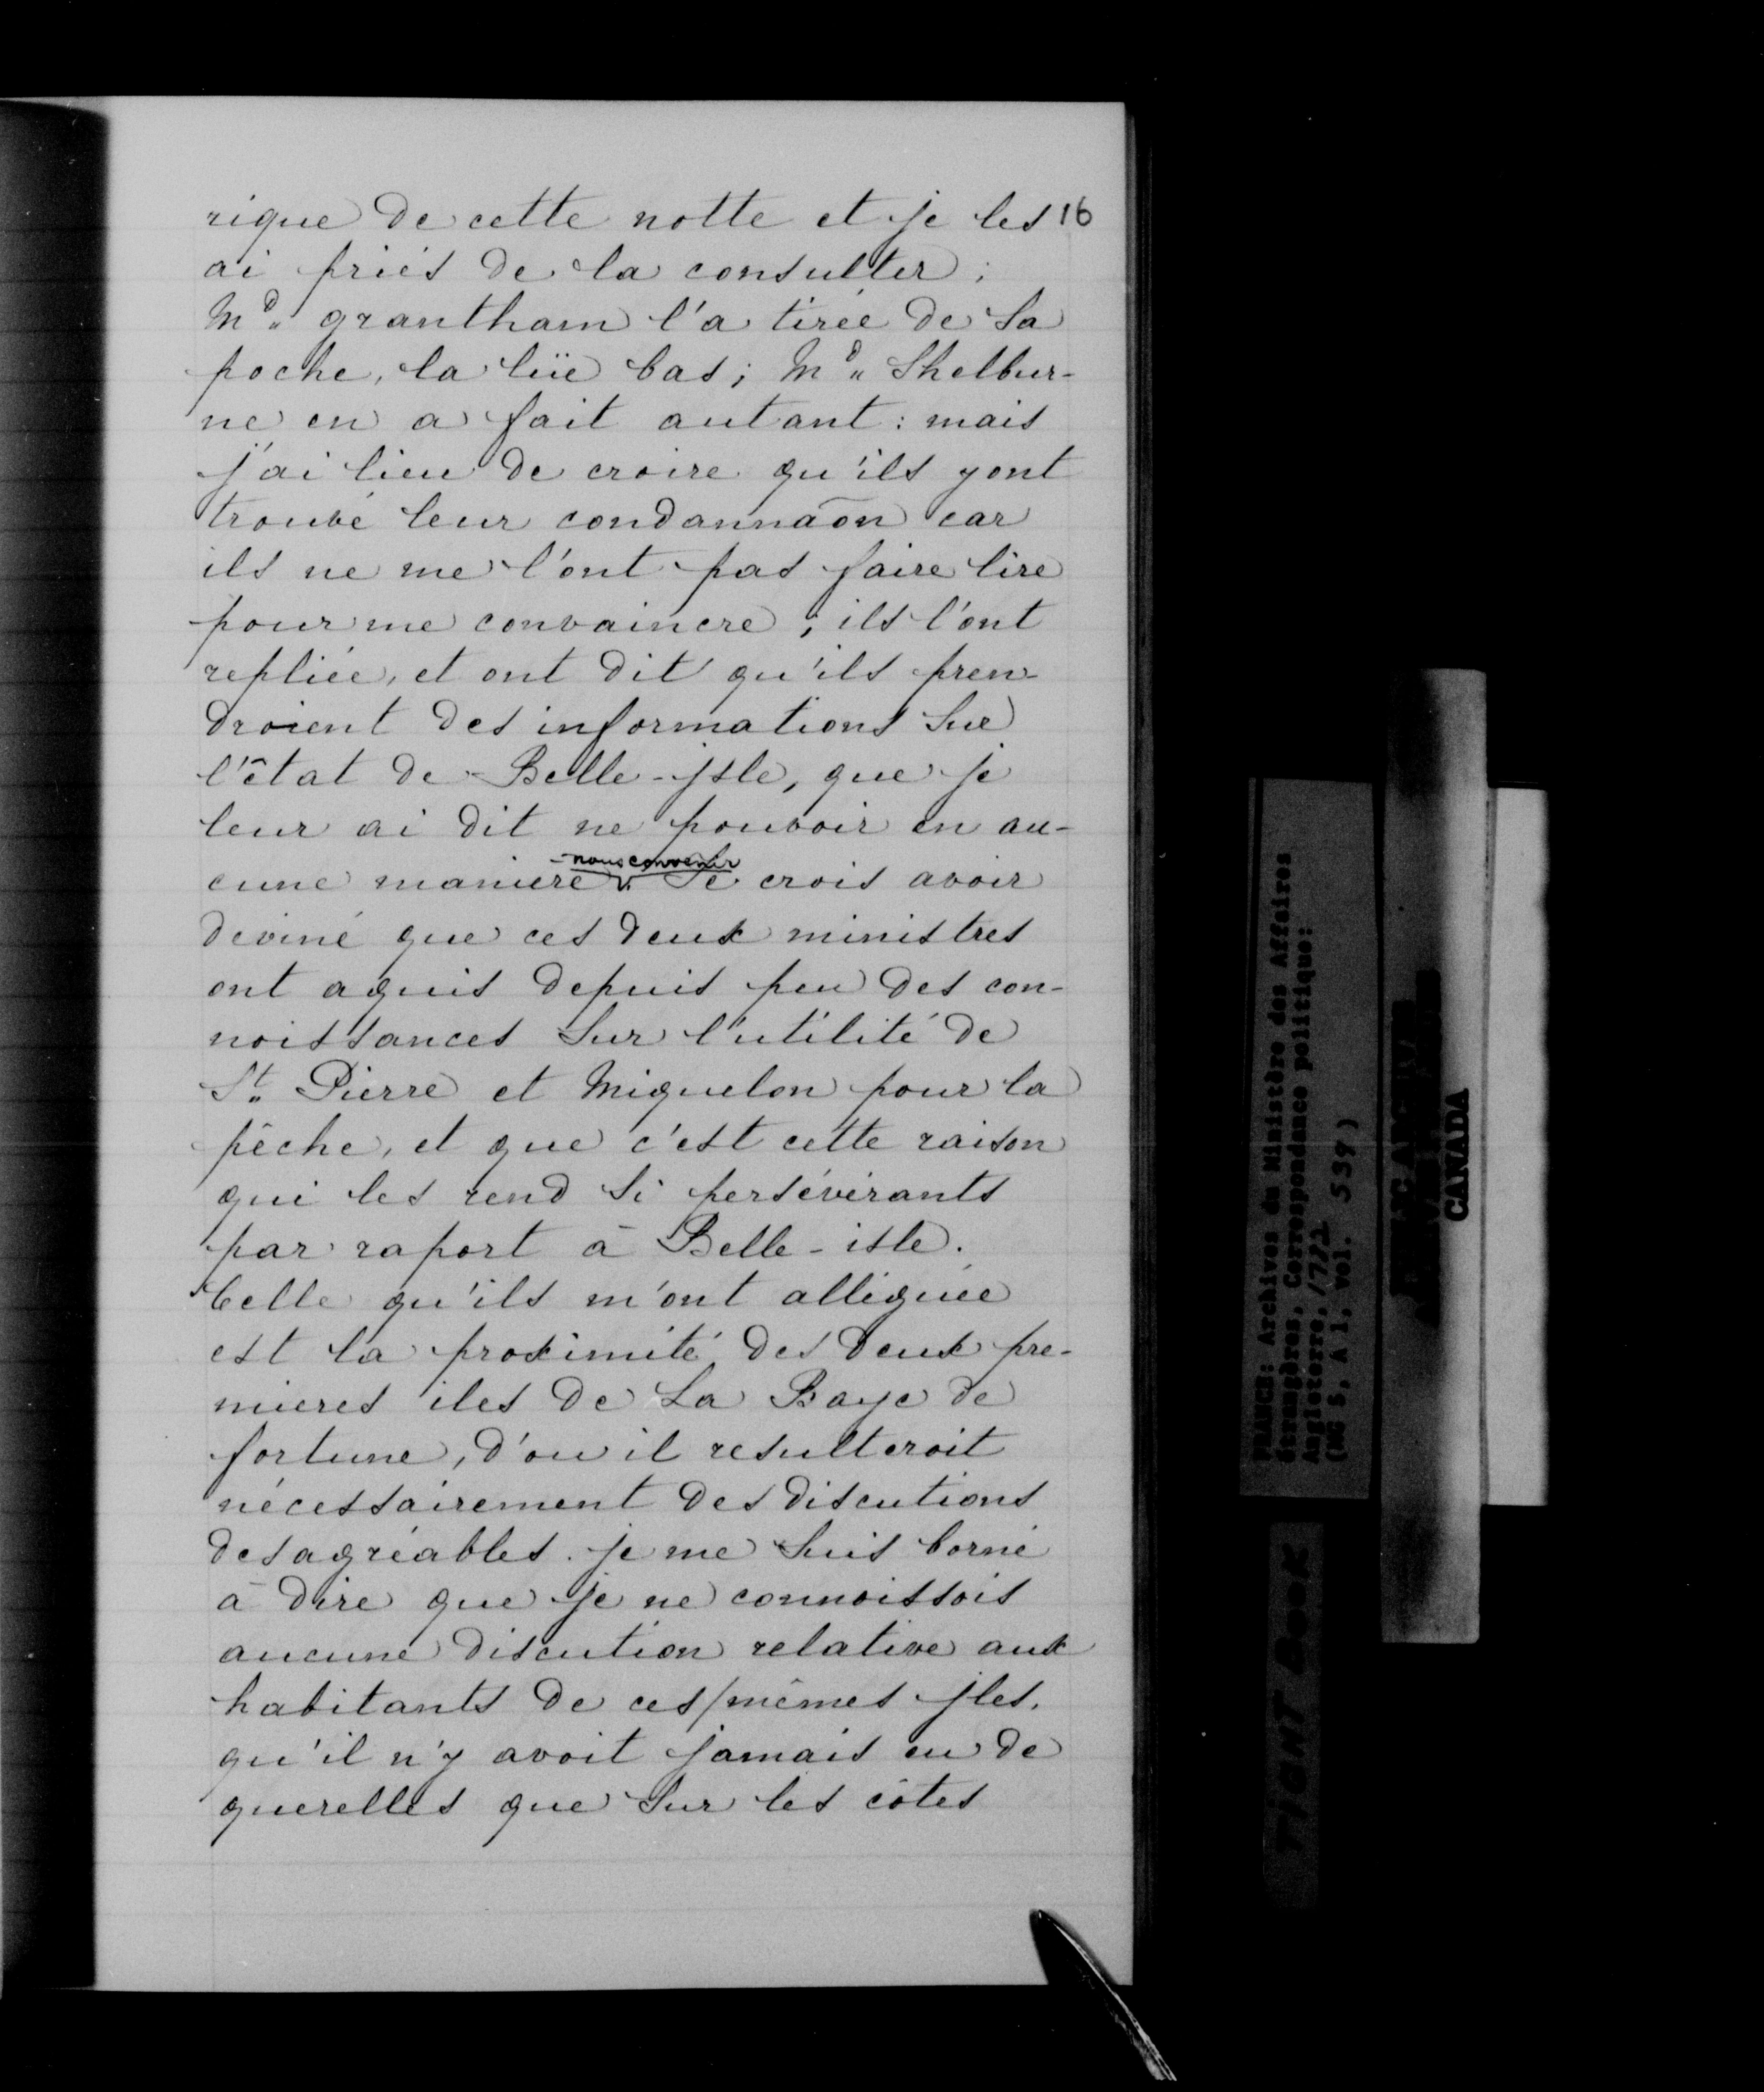 rique de cette notte et je les 16
ai priés de la consulter ;
Md. grantham l'a tirée de Sa
poche, la lüe bas ; Md. Shelbur-
ne en a fait autant : mais
j'ai lieu de croire qu'ils y ont
trouvé leur condannaōn car
ils ne me l'ont pas faire lire
pour me convaincre ; ils l'ont
repliée, et ont dit qu'ils pren-
droient des informations Sur
l'état de Belle-jsle, que je
leur ai dit ne pouvoir en au-
nous convenir
cune maniere. Je crois avoir
deviné que ces deux ministres
ont aquis depuis peu des con-
noissances Sur l'utilité de
St. Pierre et Miquelon pour la
pêche, et que c'est cette raison
qui les rend Si persévérants
par raport à Belle-isle.
Celle qu'ils m'ont alléguée
est la proximité des deux pre-
mieres iles de La Baye de
fortune, d'ou il resulteroit
nécessairement des discutions
desagréables. je me Suis borné
à dire que je ne connoissois
aucune discution relative aux
habitants de ces/mêmes jles,
qu'il n'y avoit jamais eu de
querelles que Sur les côtes
FRANCE: Archives du Ministère des Affaires
étrangères, Correspondance politique:
Angleterre,
(MG 5, A 1, vol. 539)
CANADA
TIGHT BOOK